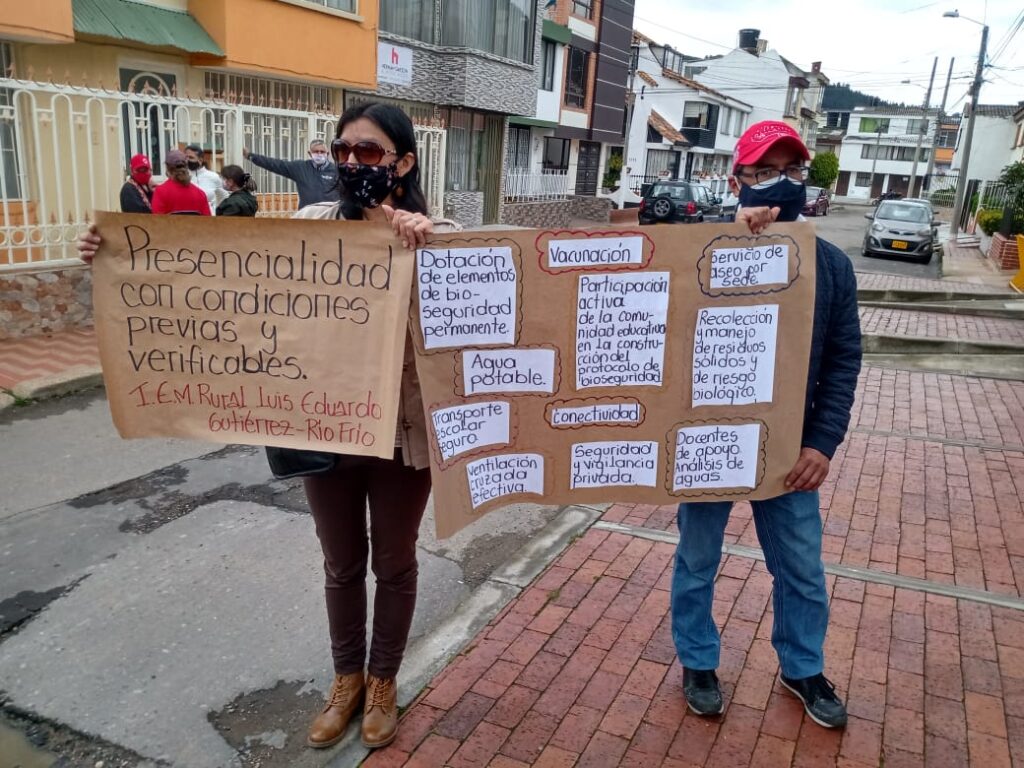 Presencialidad
con condiciones
previas y
verificables.
I.E.M. Rural Luis Eduardo
Gutiérrez - Río Frío
Dotación
de elementos
de bio-
seguridad
permanente.
Agua
potable.
Transporte
escolar
seguro.
Ventilación
cruzada
efectiva.
Vacunación
Participación
activa
de la comu-
nidad educativa
en la constru-
cción del
protocolo de
bioseguridad
Conectividad
Seguridad
y vigilancia
privada.
Servicio de
aseo por
sede.
Recolección
y manejo
de residuos
sólidos y
de riesgo
biológico.
Docentes
de apoyo
Análisis de
aguas.